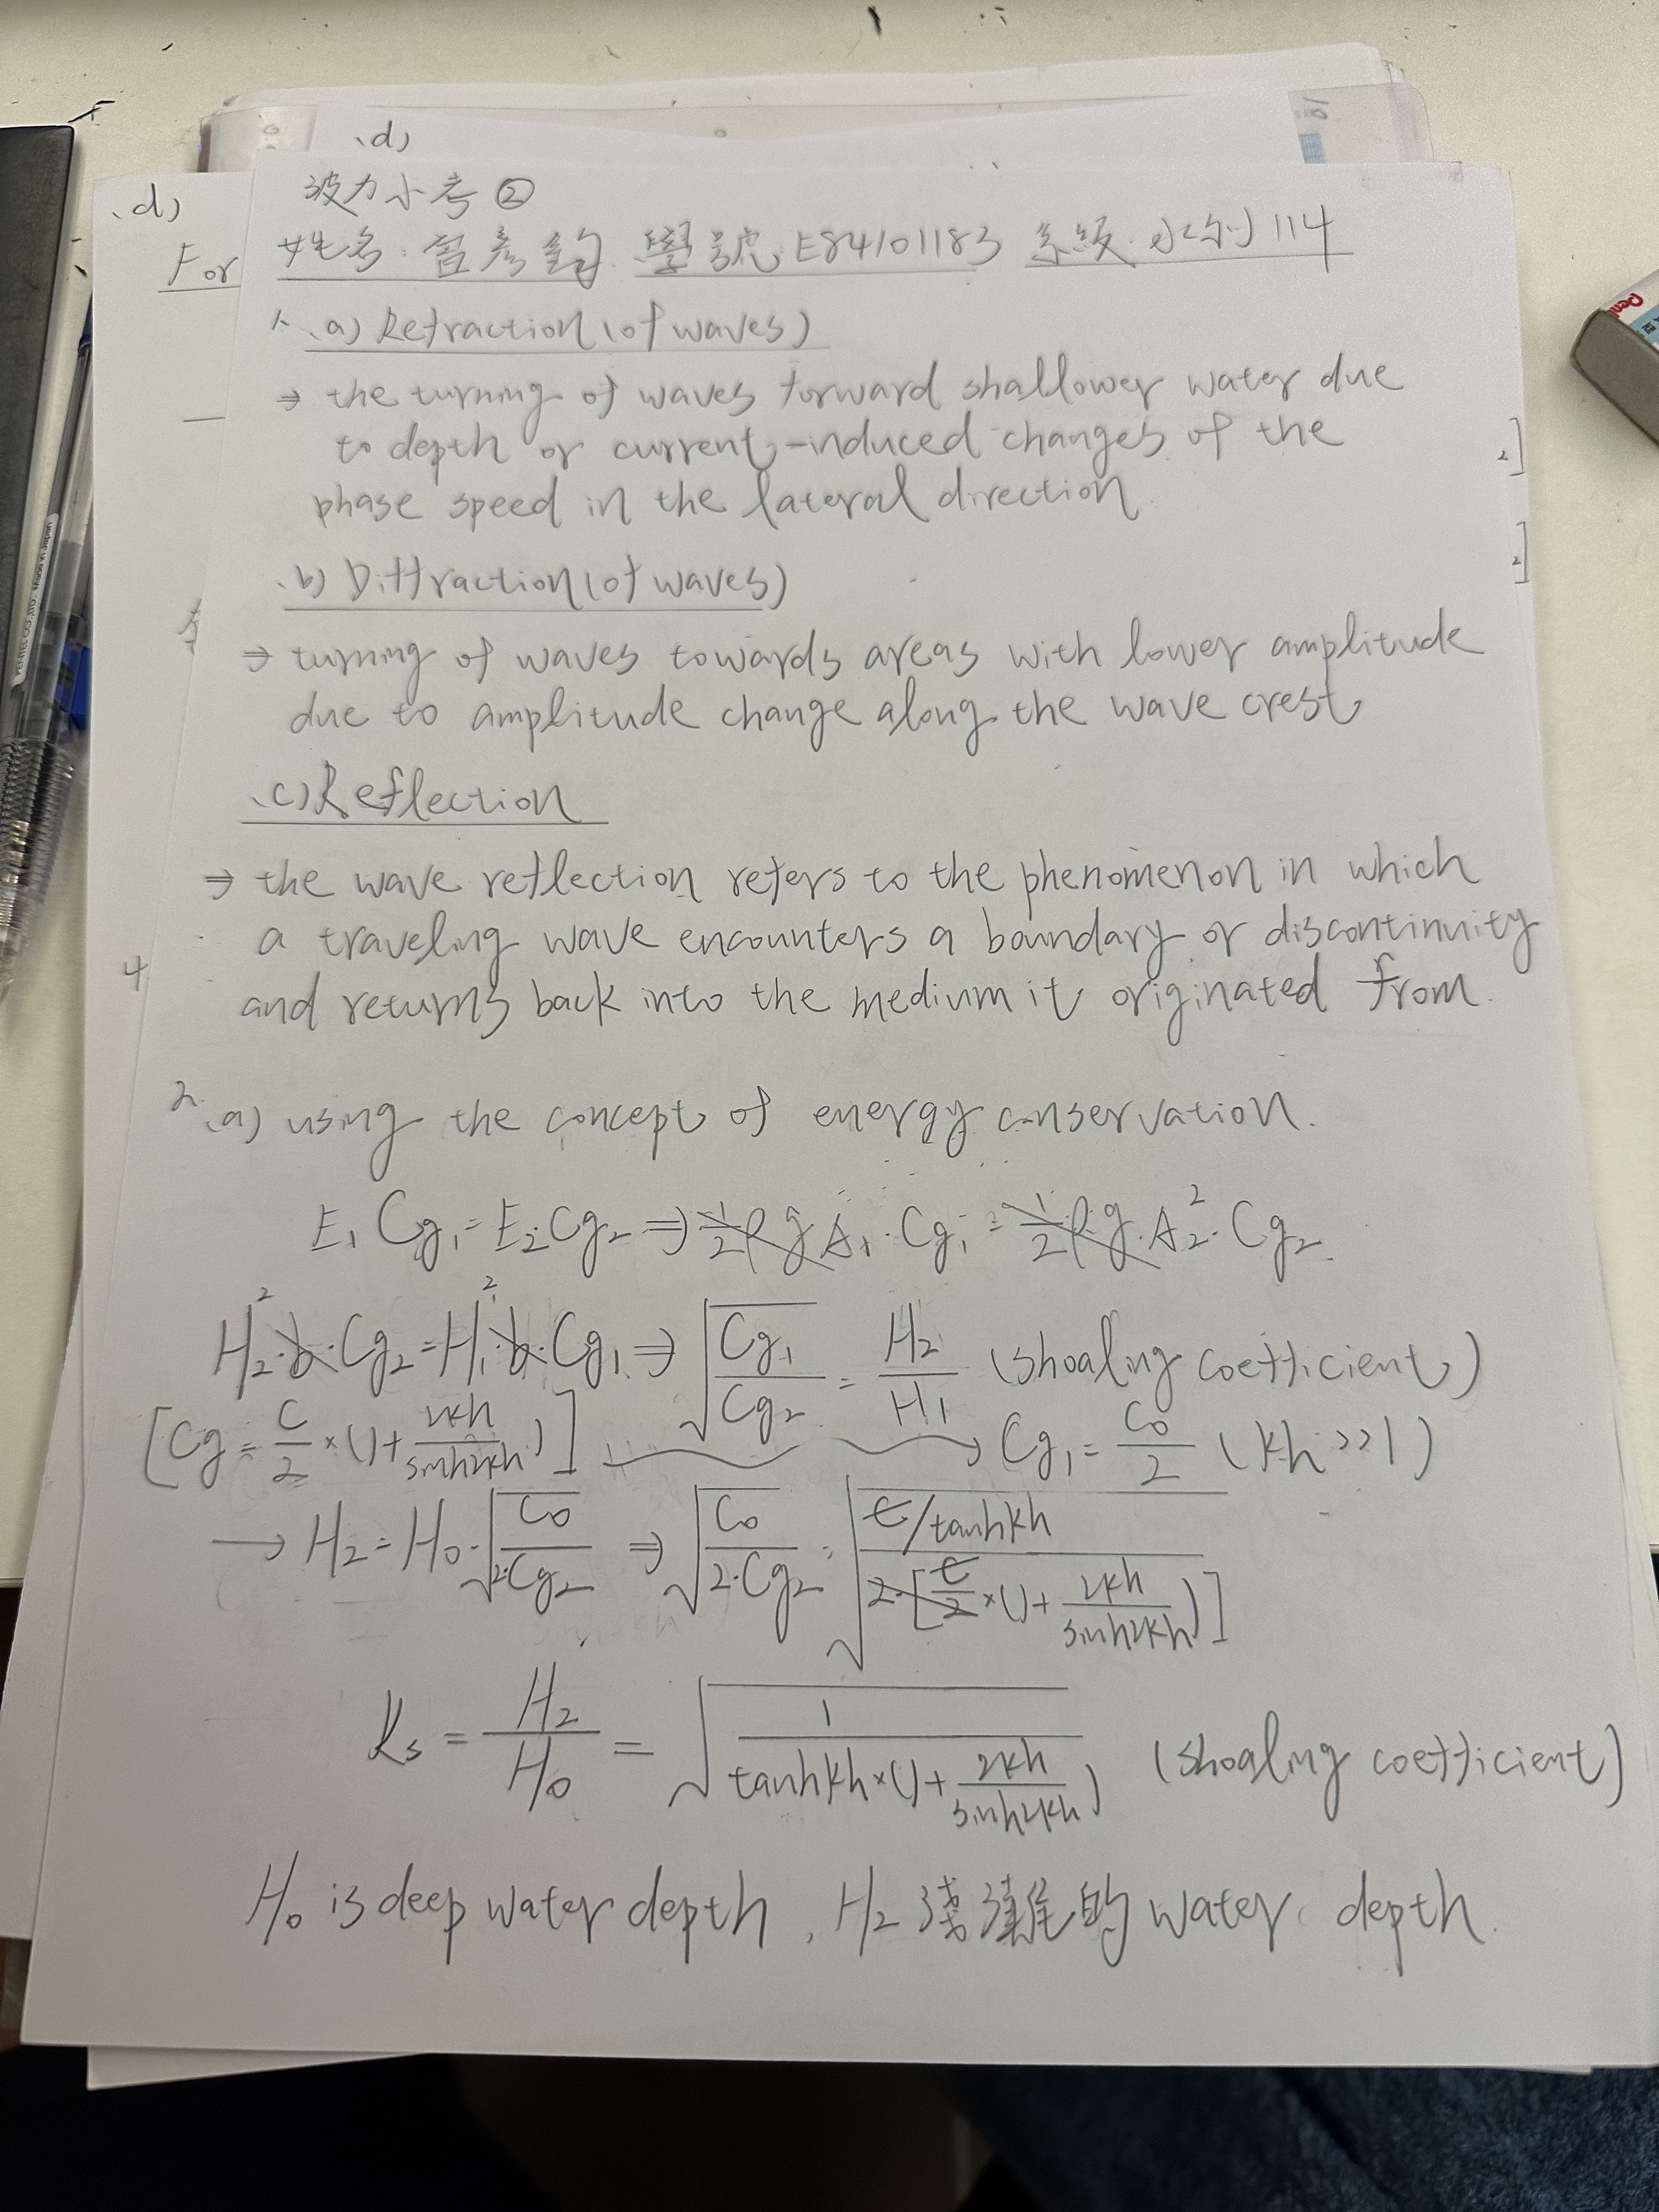 .d)
.d)
For
波力小考②
姓名: 曾彥鈞 學號: E84101183 系級: 水利114
1. .a) Refraction (of waves)
⇒ the turning of waves forward shallower water due
to depth or current-induced changes of the
phase speed in the lateral direction
.b) Diffraction (of waves)
⇒ turning of waves towards areas with lower amplitude
due to amplitude change along the wave crest
.c) Reflection
⇒ the wave reflection refers to the phenomenon in which
a traveling wave encounters a boundary or discontinuity
and returns back into the medium it originated from.
4
2. .a) using the concept of energy conservation.
E₁Cg₁ = E₂Cg₂ ⇒ 1/2 ρg A₁² · Cg₁ = 1/2 ρg · A₂² · Cg₂
H₂² · b · Cg₂ = H₁² · b · Cg₁ ⇒ √(Cg₁/Cg₂) = H₂/H₁ (shoaling coefficient)
[Cg = C/2 × (1 + 2kh/sinh2kh)] → Cg₁ = C₀/2 (kh >> 1)
→ H₂ = H₀ · √(C₀/2·Cg₂) ⇒ √(C₀/2·Cg₂) = √(C/tanhkh / 2·[C/2 × (1 + 2kh/sinh2kh)])
Ks = H₂/H₀ = √(1/tanhkh × (1 + 2kh/sinh2kh)) (shoaling coefficient)
H₀ is deep water depth, H₂ 淺灘的 water depth.